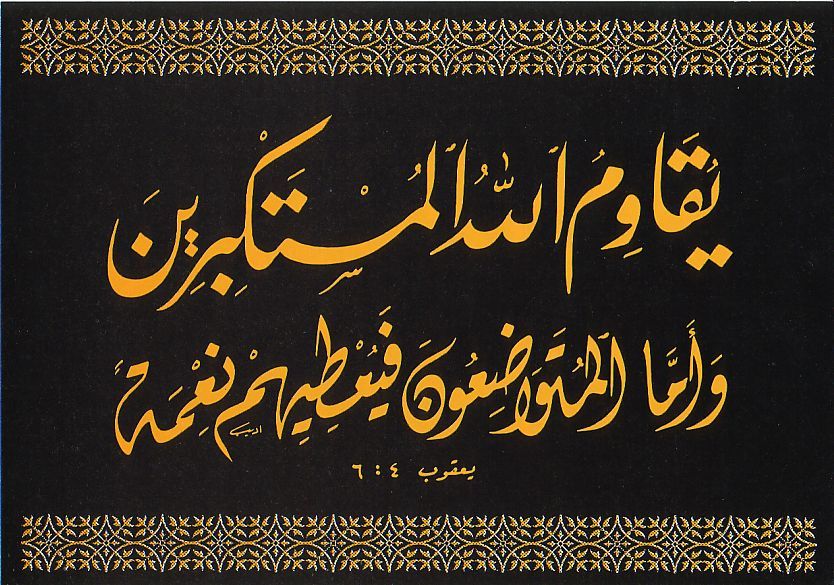 يُقَاوِمُ ٱللّٰهُ ٱلْمُسْتَكْبِرِينَ
وَأَمَّا ٱلْمُتَوَاضِعُونَ فَيُعْطِيهِمْ نِعْمَةً
يعقوب ٤ : ٦